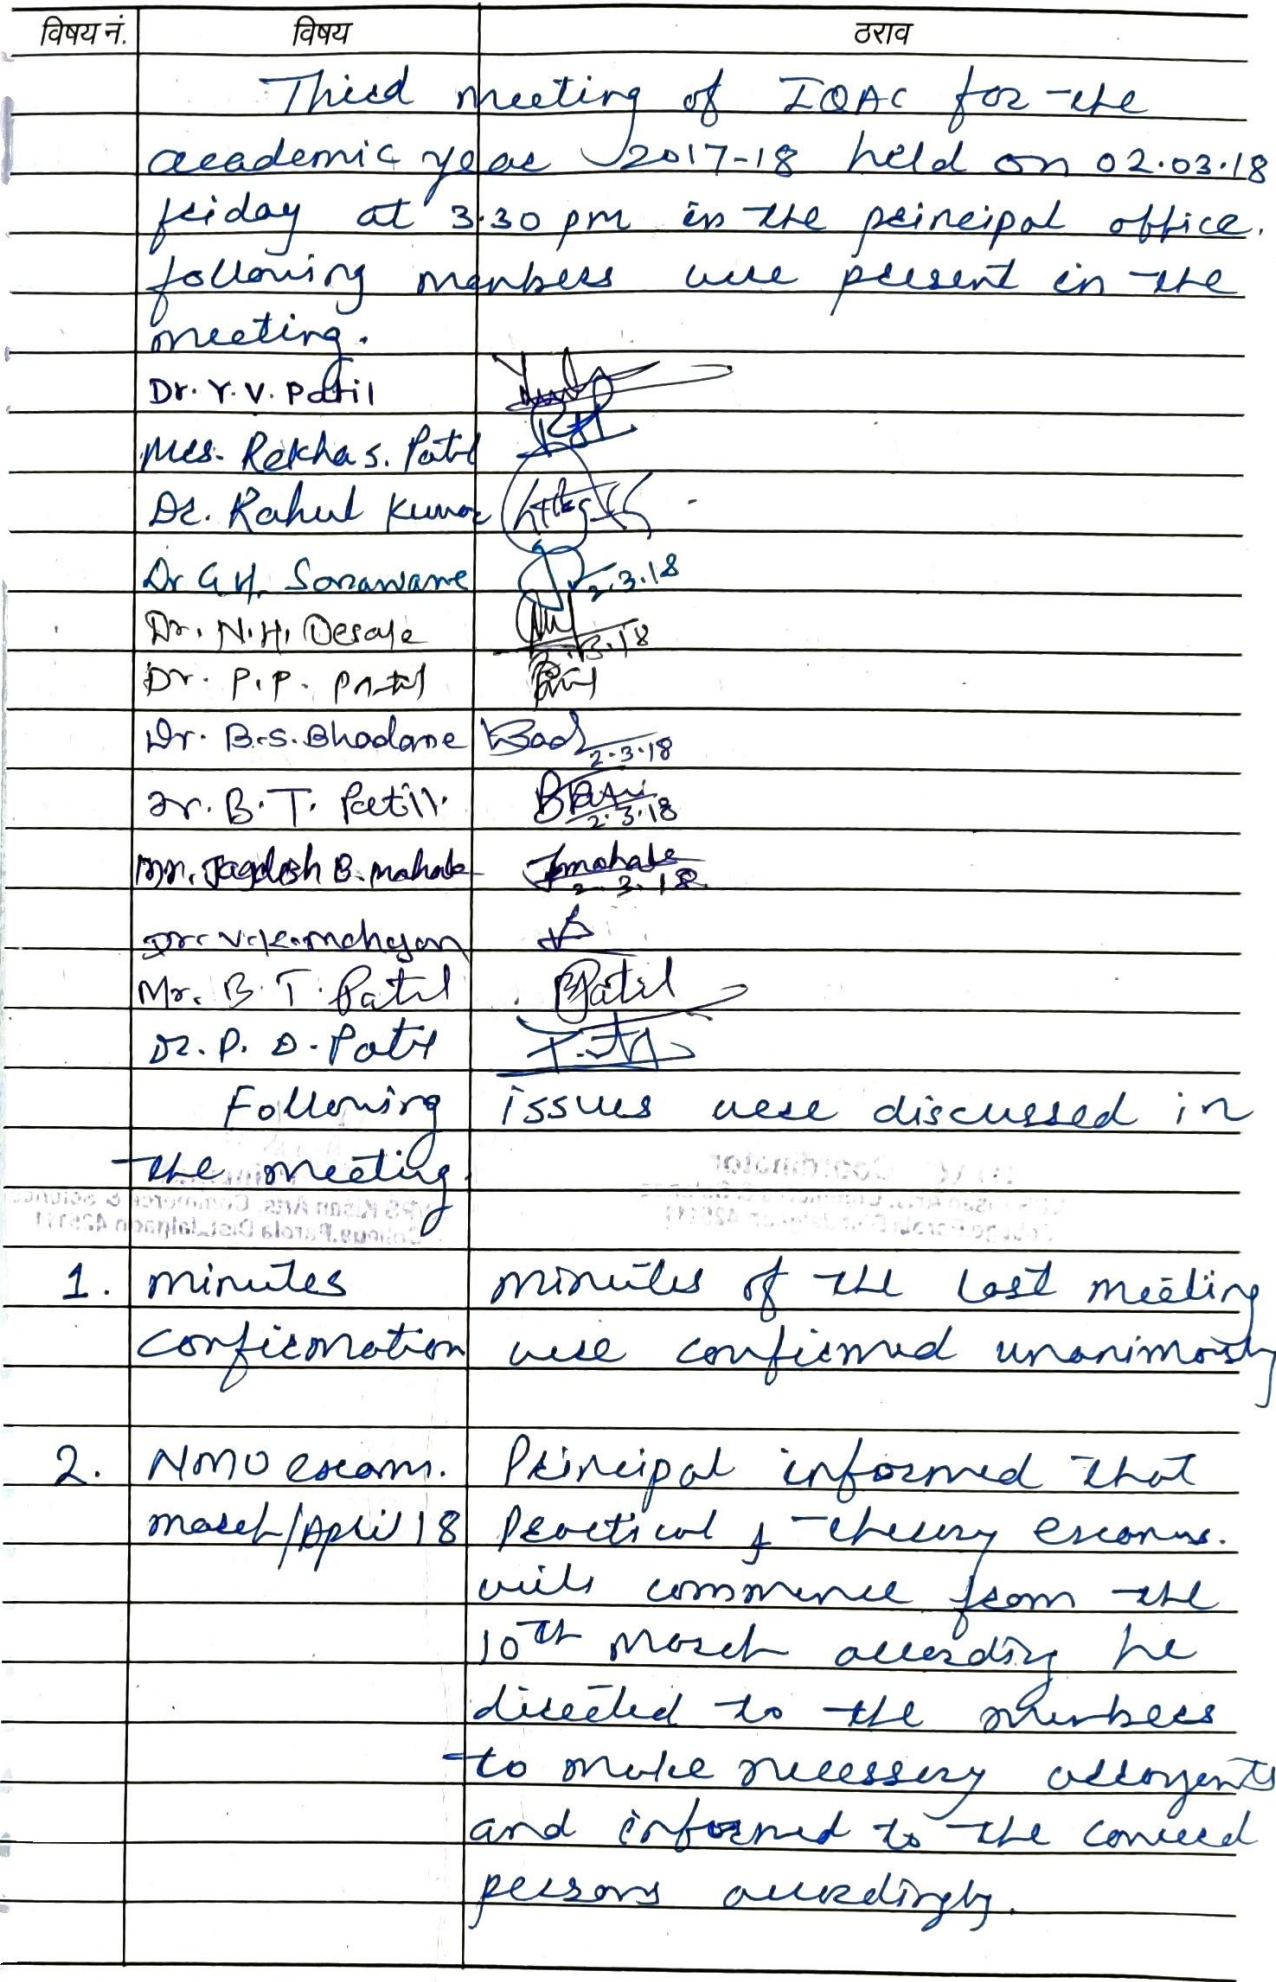 विषय नं. विषय ठराव
Third meeting of IQAC for the
academic year 2017-18 held on 02.03.18
friday at 3.30 pm in the principal office.
following members were present in the
meeting.
Dr. Y. V. Patil
Mrs. Rekha S. Patil
Dr. Rahul Kumar
Dr G. H. Sonawane 2.3.18
Dr. N. H. Desale 2.3.18
Dr. P. P. Patil
Dr. B. S. Bhadane 2.3.18
Dr. B. T. Patil 2.3.18
Mr. Jagdish B. mahale Jmahale 2.3.18
Dr. V. K. mahajan
Mr. B. T. Patil BPatil
Dr. P. D. Patil
Following issues were discussed in
the meeting.
1. minutes minutes of the last meeting
confirmation were confirmed unanimously
2. NMU exam. Principal informed that
march/April 18 Practical & theory exams.
will commence from the
10th March according he
directed to the members
to make necessary
and informed to the
persons accordingly.